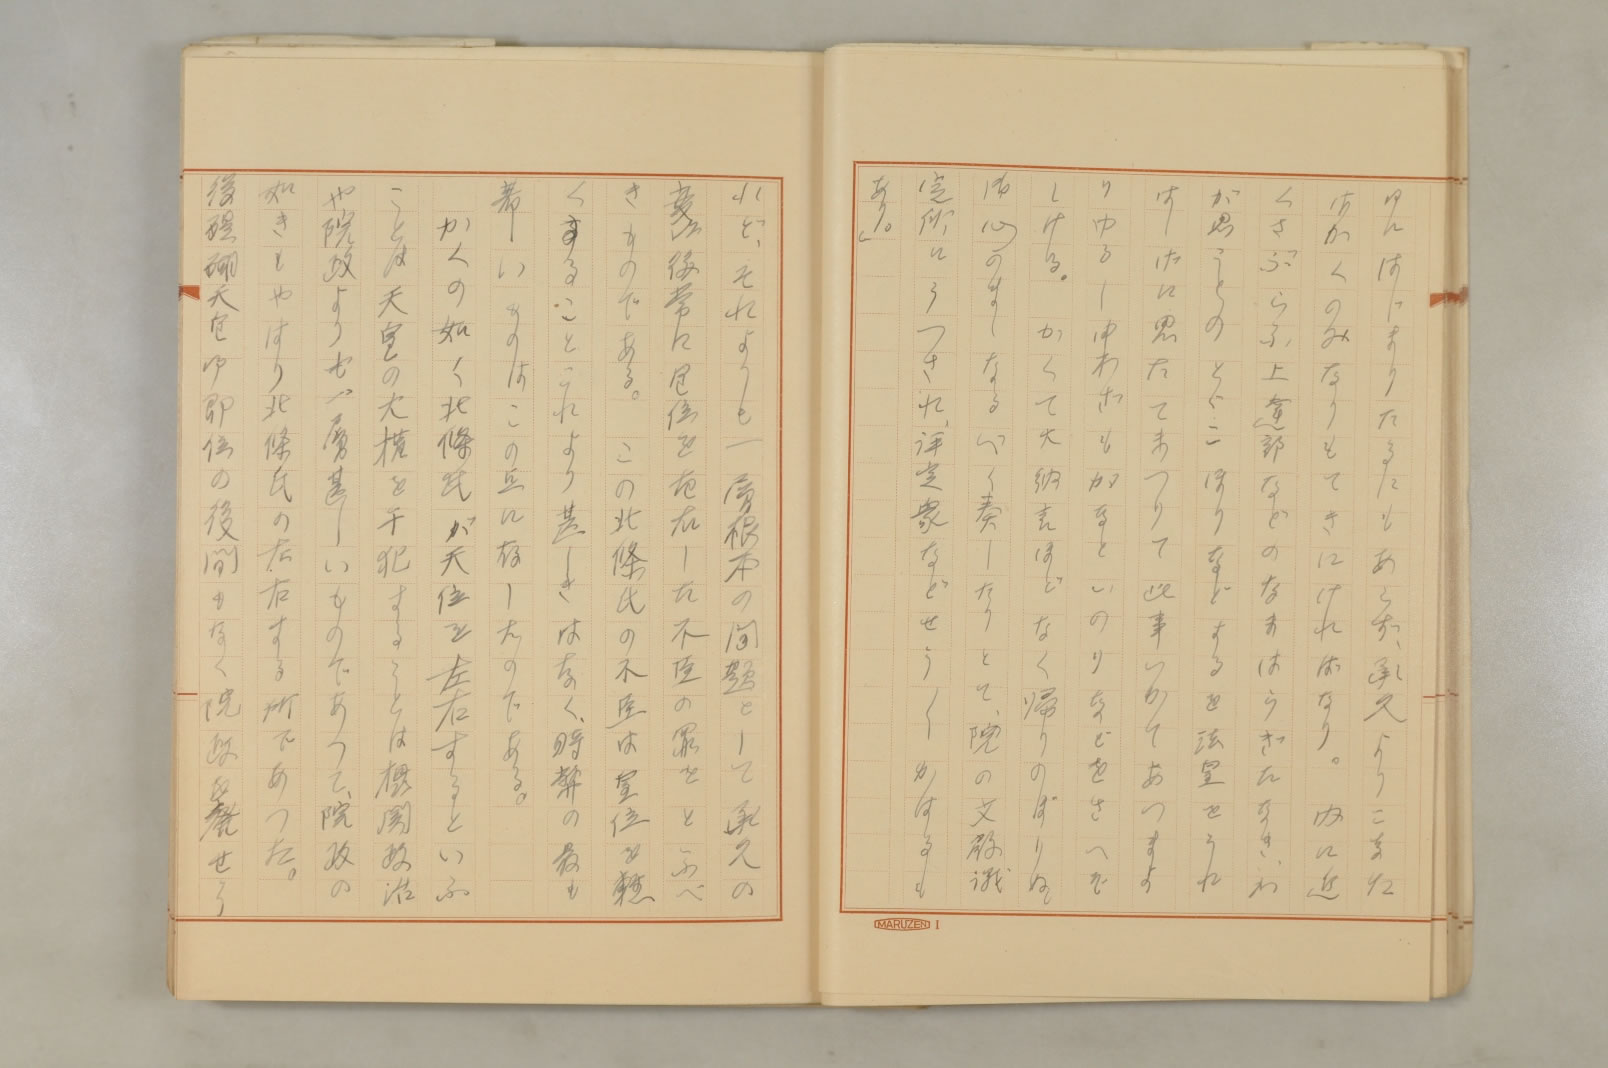 ゆにはじまりたるにもあらず、承久よりこなた
はかくのみなりもてきにければなり。内に近
くさぶらふ上達部などのなまはらぎたなき、わ
が思ことのとゞこほりなどするを法皇をうれ
はしげに思たてまつりて此事いかであつまよ
りゆるし申わざもがなといのりなどをさへぞ
しける。かくて大納言ほどなく帰りのぼりぬ。
御心のまゝなるべく奏したりとて、院の文殿議
定所にうつされ、評定衆などせう〳〵かはるも
あり。」
MARUZEN 1
れど、それよりも一層根本の問題として承久の
変以後常に皇位を左右した不臣の罪をとふべ
きものである。この北條氏の不臣は皇位を
くすることこれより甚しきはなく、時弊の最も
著しいものはこの点に存したのである。
かくの如く北條氏が天位を左右するといふ
ことは天皇の大権を干犯することは機関政治
や院政よりも一層甚しいものであつて、院政の
如きもやはり北條氏の左右する所であつた。
後醍醐天皇御即位の後間もなく院政を廃せら